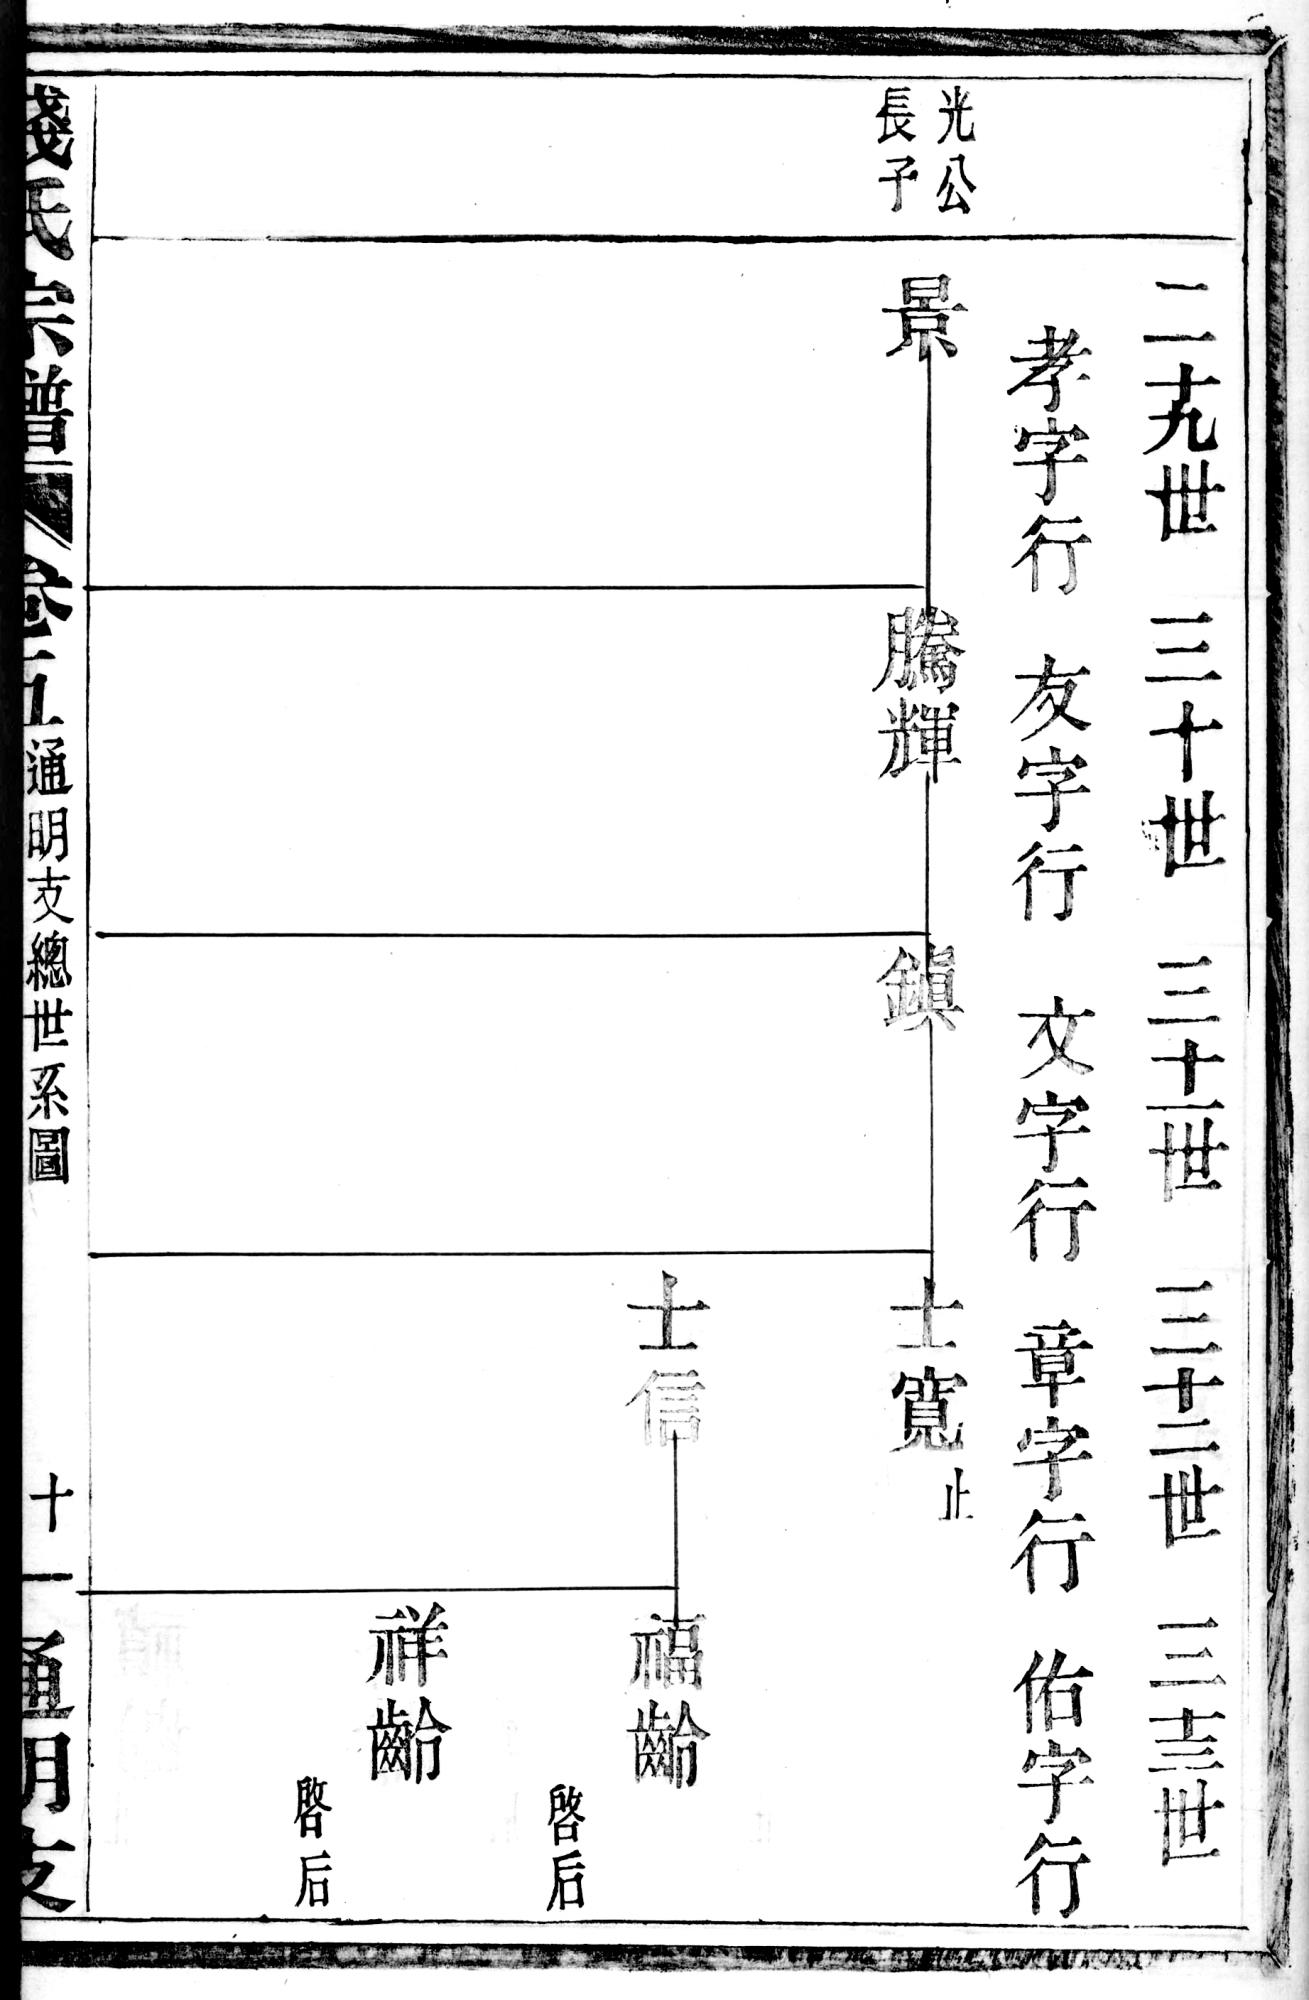 二十九世 三十世 三十一世 三十二世 三十三世
孝字行 友字行 文字行 章字行 佑字行
光公
長子
景 騰輝 鎮 士寬 止
士信 福齡 啓后
祥齡 啓后
錢氏宗譜 卷五 通明支總世系圖 十一 通明支